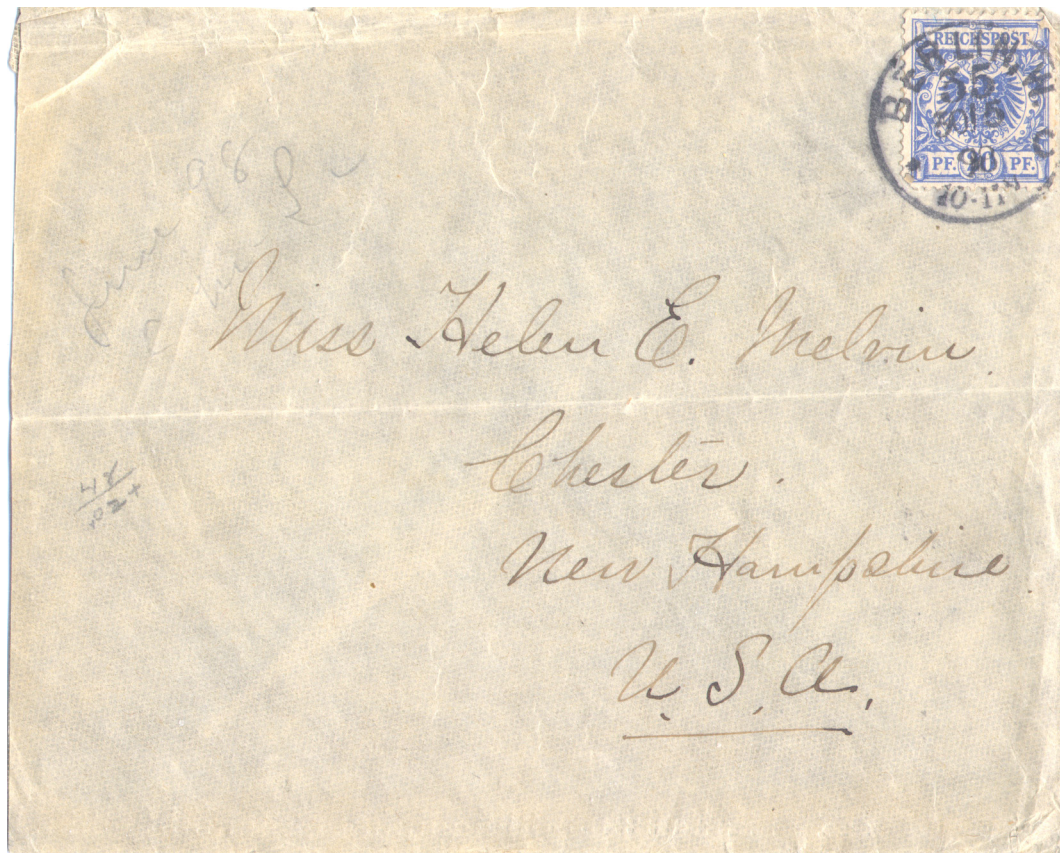 REICHSPOST
PF. PF.
BERLIN.W
35
90
10-11V
Miss Helen E. Melvin
Chester.
New Hampshire
U. S. A.